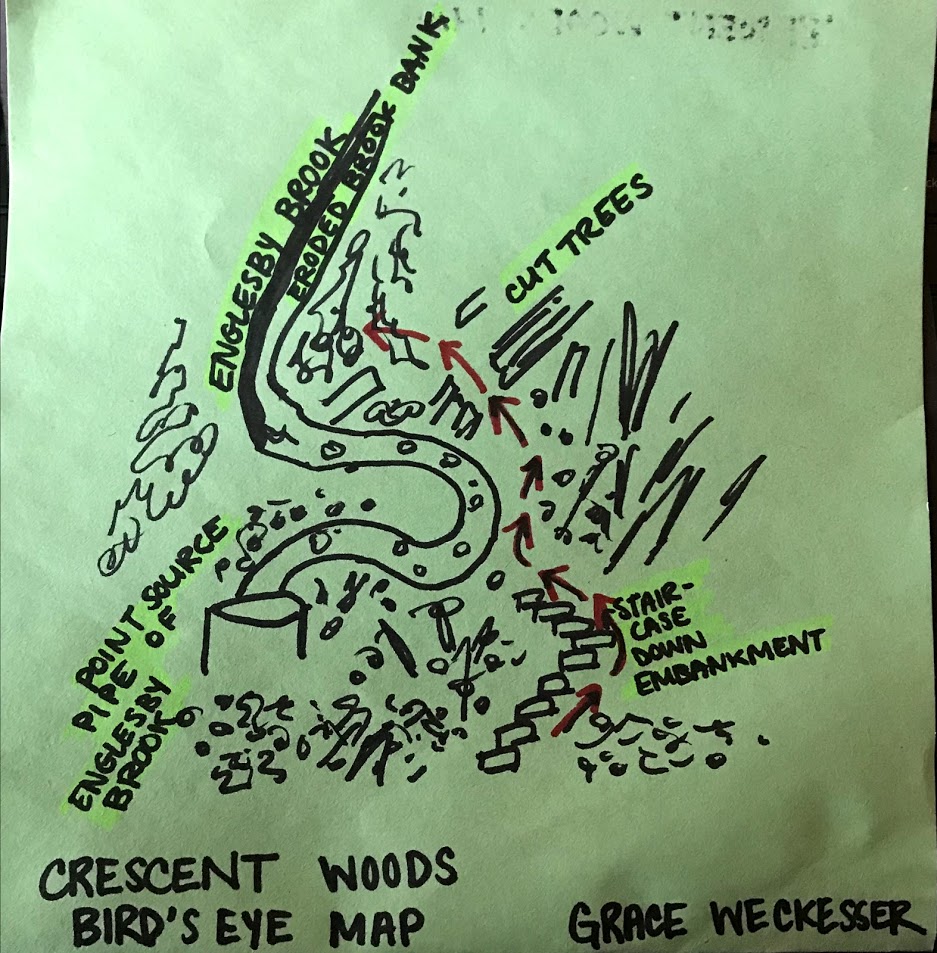 ENGLESBY BROOK
ERODED BROOK BANK
CUT TREES
POINT SOURCE
PIPE OF
ENGLESBY
BROOK
STAIR-
CASE
DOWN
EMBANKMENT
CRESCENT WOODS
BIRD'S EYE MAP
GRACE WECKESSER